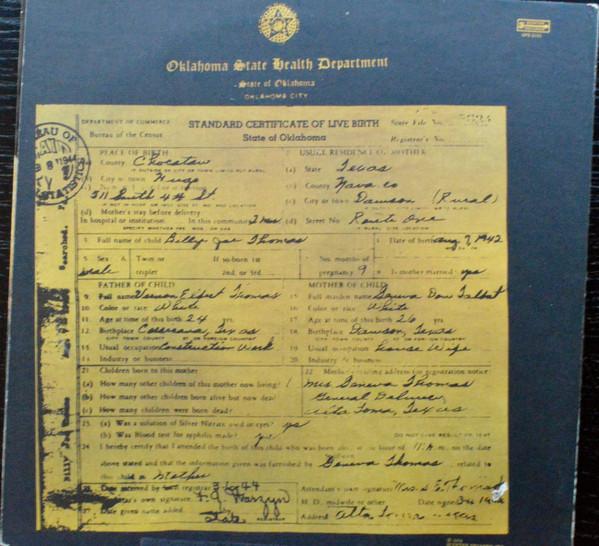 Oklahoma State Health Department
State of Oklahoma
OKLAHOMA CITY
DEPARTMENT OF COMMERCE
Bureau of the Census
STANDARD CERTIFICATE OF LIVE BIRTH
State of Oklahoma
State File No.
Registrar's No.
PLACE OF BIRTH
County Choctaw
City or town Hugo
511 South 4th St
(d) Mother's stay before delivery
In hospital or institution. In this community
USUAL RESIDENCE OF MOTHER
(a) State Texas
(b) County Navarro
(c) City or town Dawson (Rural)
(d) Street No. Route One
Full name of child Billy Joe Thomas
Date of birth Aug 7, 1942
5. Sex male
Twin or triplet
If so-born 1st 2nd. or 3rd.
No. months of pregnancy 9
Is mother married yes
FATHER OF CHILD
9. Full name Vernon Elbert Thomas
10. Color or race White
11. Age at time of this birth 24 yrs.
12. Birthplace Corsicana, Texas
Usual occupation Construction Work
Industry or business
MOTHER OF CHILD
Full maiden name Geneva Talbot
Color or race White
17. Age at time of this birth 26 yrs.
18. Birthplace Dawson, Texas
Usual occupation House Wife
20. Industry or business
21 Children born to this mother
(a) How many other children of this mother now living 1
(b) How many other children born alive but now dead
(c) How many children were born dead
22. Mother's mailing address for registration notice:
Mrs Geneva Thomas
General Delivery
Alta Loma, Texas
(a) Was a solution of Silver Nitrate used in eyes? yes
(b) Was Blood test for syphilis made? yes
24 I hereby certify that I attended the birth of this child who was born at the hour of M. on the date
above stated and that the information given was furnished by Geneva Thomas, related to
this child as Mother
Date received by registrar
Attendant's own signature
own signature
M. D. midwife or other
Date signed
Date given name added
Address Alta Loma Texas
BUREAU OF
STATISTICS
1944
Searched.
Billy Joe